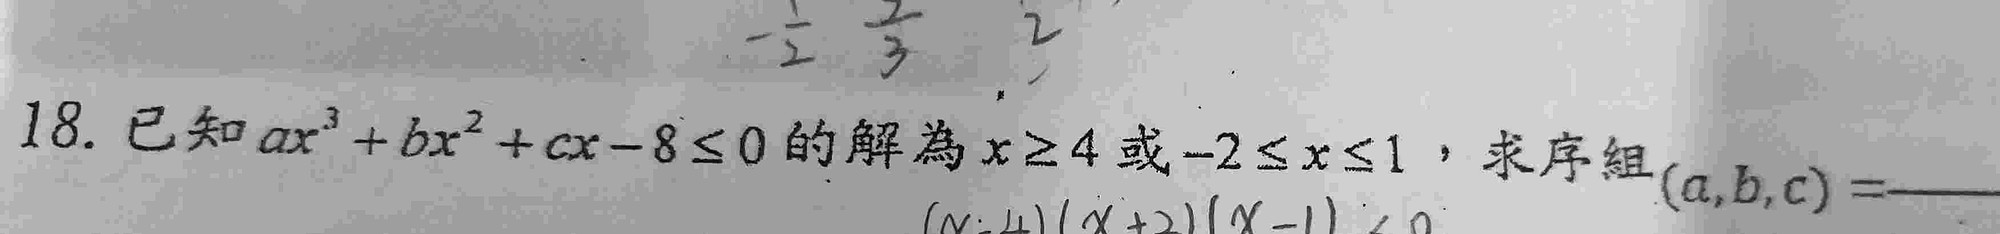 -1/2 2/3 2
18. 已知 ax³ + bx² + cx - 8 ≤ 0 的解為 x ≥ 4 或 -2 ≤ x ≤ 1，求序組(a,b,c) =____
(x-4)(x+2)(x-1) < 0